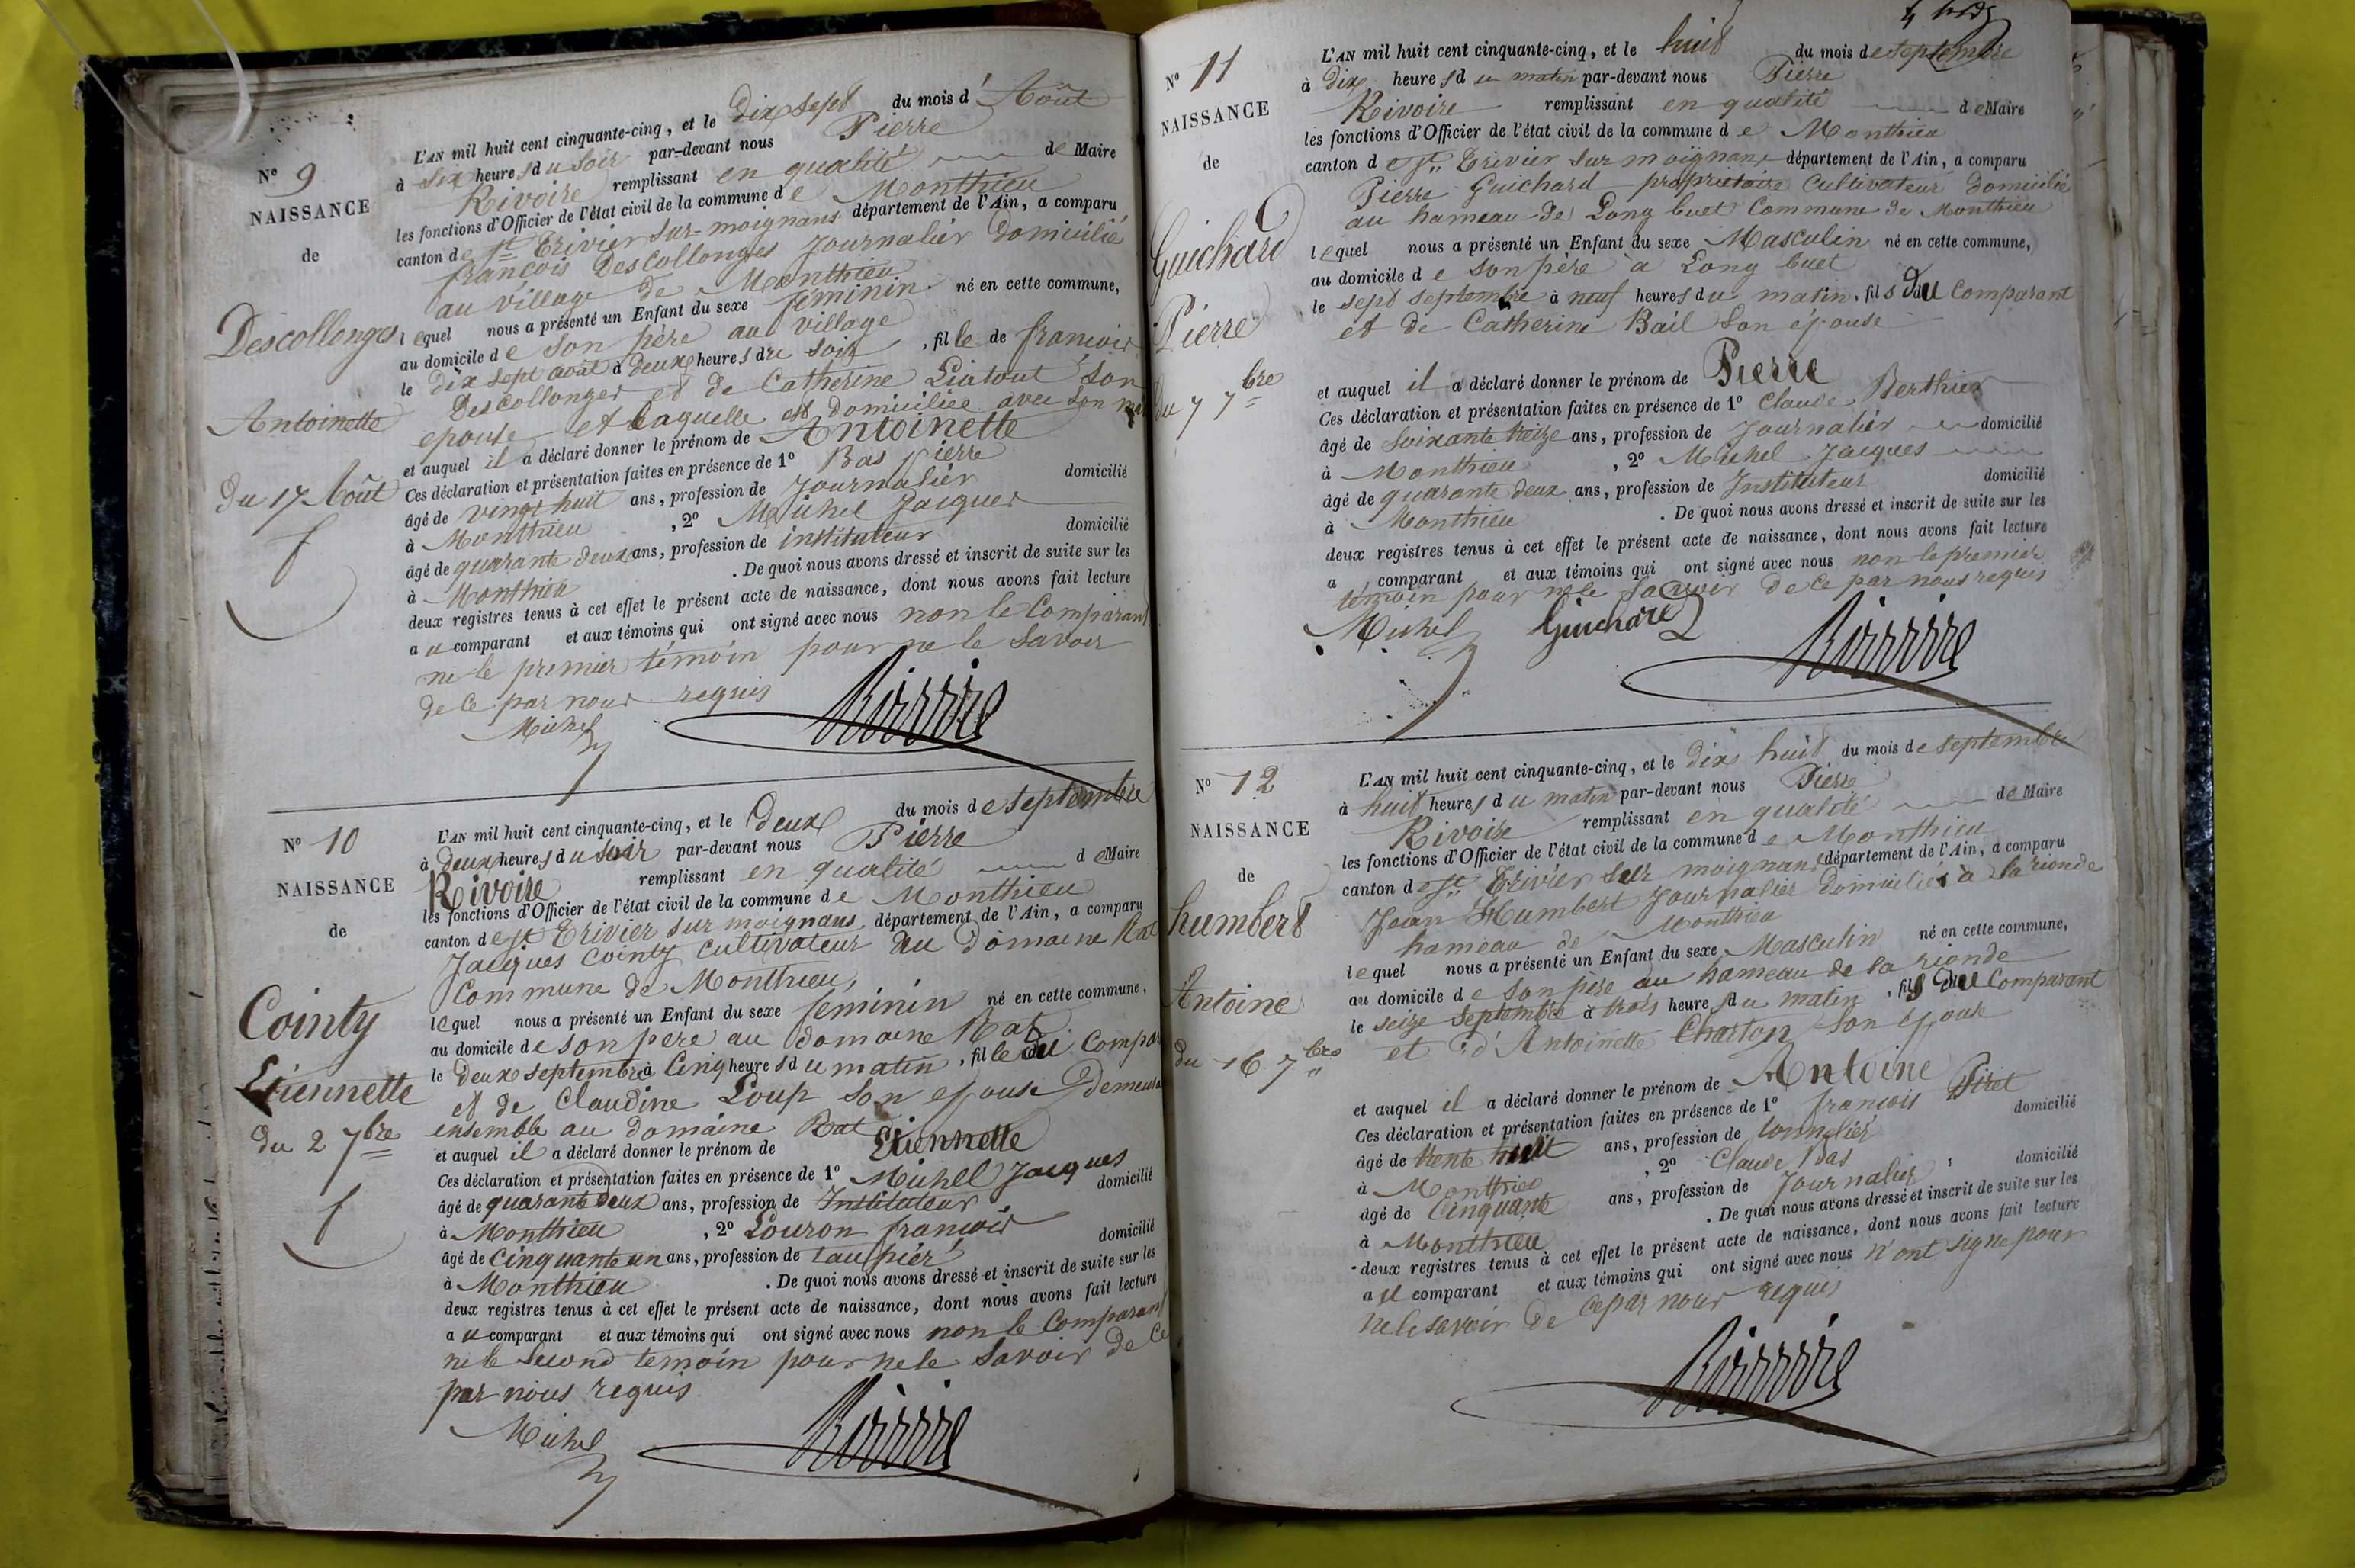 N° 9
NAISSANCE
de
Descollonges
Antoinette
du 17 Août
L'AN mil huit cent cinquante-cinq, et le Dix Sept du mois d'Août
à Six heures du Soir par-devant nous Pierre
Rivoire remplissant en qualité de Maire
les fonctions d'Officier de l'état civil de la commune de Monthieu
canton de St Trivier sur-moignans département de l'Ain, a comparu
françois Descollonges Journalier Domicilié
au village de Monthieu
lequel nous a présenté un Enfant du sexe féminin né en cette commune,
au domicile de son père au village
le Dix sept août à Deux heures du soir, fille de françois
Descollonges et de Catherine Liatout son
epouse et laquelle est domiciliée avec son
et auquel il a déclaré donner le prénom de Antoinette
Ces déclaration et présentation faites en présence de 1° Bas pierre
âgé de vingt huit ans, profession de Journalier domicilié
à Monthieu, 2° Michel Jacques
âgé de quarante deux ans, profession de instituteur domicilié
à Monthieu. De quoi nous avons dressé et inscrit de suite sur les
deux registres tenus à cet effet le présent acte de naissance, dont nous avons fait lecture
au comparant et aux témoins qui ont signé avec nous non le Comparant
ni le premier témoin pour ne le savoir
de ce par nous requis
Michel Rivoire
N° 10
NAISSANCE
de
Cointy
Etiennette
du 2 7bre
L'AN mil huit cent cinquante-cinq, et le Deux du mois de Septembre
à Deux heures du soir par-devant nous Pierre
Rivoire remplissant en qualité de Maire
les fonctions d'Officier de l'état civil de la commune de Monthieu
canton de St Trivier sur moignans département de l'Ain, a comparu
Jacques Cointy cultivateur au Domaine Rat
Commune de Monthieu,
lequel nous a présenté un Enfant du sexe féminin né en cette commune,
au domicile de son père au Domaine Rat
le Deux septembre à Cinq heures du matin, fille du Compa
et de Claudine Loup son epouse Demeurant
ensemble au domaine Rat
et auquel il a déclaré donner le prénom de Etiennette
Ces déclaration et présentation faites en présence de 1° Michel Jacques
âgé de quarante deux ans, profession de Instituteur domicilié
à Monthieu, 2° Louron françois
âgé de Cinquante un ans, profession de taupier domicilié
à Monthieu. De quoi nous avons dressé et inscrit de suite sur les
deux registres tenus à cet effet le présent acte de naissance, dont nous avons fait lecture
au comparant et aux témoins qui ont signé avec nous non le Comparant
ni le second témoin pour ne le savoir de ce
par nous requis
Michel Rivoire
N° 11
NAISSANCE
de
Guichard
Pierre
du 7 7bre
L'AN mil huit cent cinquante-cinq, et le huit du mois de Septembre
à Dix heures du matin par-devant nous Pierre
Rivoire remplissant en qualité de Maire
les fonctions d'Officier de l'état civil de la commune de Monthieu
canton de St Trivier sur moignans département de l'Ain, a comparu
Pierre Guichard propriétaire Cultivateur Domicilié
au hameau de Long buet Commune de Monthieu
lequel nous a présenté un Enfant du sexe Masculin né en cette commune,
au domicile de son père à Long buet
le sept septembre à neuf heures du matin, fils du Comparant
et de Catherine Bail son épouse
et auquel il a déclaré donner le prénom de Pierre
Ces déclaration et présentation faites en présence de 1° Claude Berthier
âgé de soixante treize ans, profession de Journalier domicilié
à Monthieu, 2° Michel Jacques
âgé de quarante deux ans, profession de Instituteur domicilié
à Monthieu. De quoi nous avons dressé et inscrit de suite sur les
deux registres tenus à cet effet le présent acte de naissance, dont nous avons fait lecture
a comparant et aux témoins qui ont signé avec nous non le premier
témoin pour ne le savoir de ce par nous requis
Michel Guichard Rivoire
N° 12
NAISSANCE
de
humbert
Antoine
du 16 7bre
L'AN mil huit cent cinquante-cinq, et le Dix huit du mois de Septembre
à huit heures du matin par-devant nous Pierre
Rivoire remplissant en qualité de Maire
les fonctions d'Officier de l'état civil de la commune de Monthieu
canton de St Trivier sur moignans département de l'Ain, a comparu
Jean Humbert Journalier Domicilié à la rionde
hameau de Monthieu
lequel nous a présenté un Enfant du sexe Masculin né en cette commune,
au domicile de son père au hameau de la rionde
le seize Septembre à trois heures du matin, fils du Comparant
et d'Antoinette Charton son épouse
et auquel il a déclaré donner le prénom de Antoine
Ces déclaration et présentation faites en présence de 1° françois Piret
âgé de trente huit ans, profession de tonnelier domicilié
à Monthieu, 2° Claude Bas
âgé de Cinquante ans, profession de Journalier domicilié
à Monthieu. De quoi nous avons dressé et inscrit de suite sur les
deux registres tenus à cet effet le présent acte de naissance, dont nous avons fait lecture
au comparant et aux témoins qui ont signé avec nous n'ont signé pour
ne le savoir de ce par nous requis
Rivoire